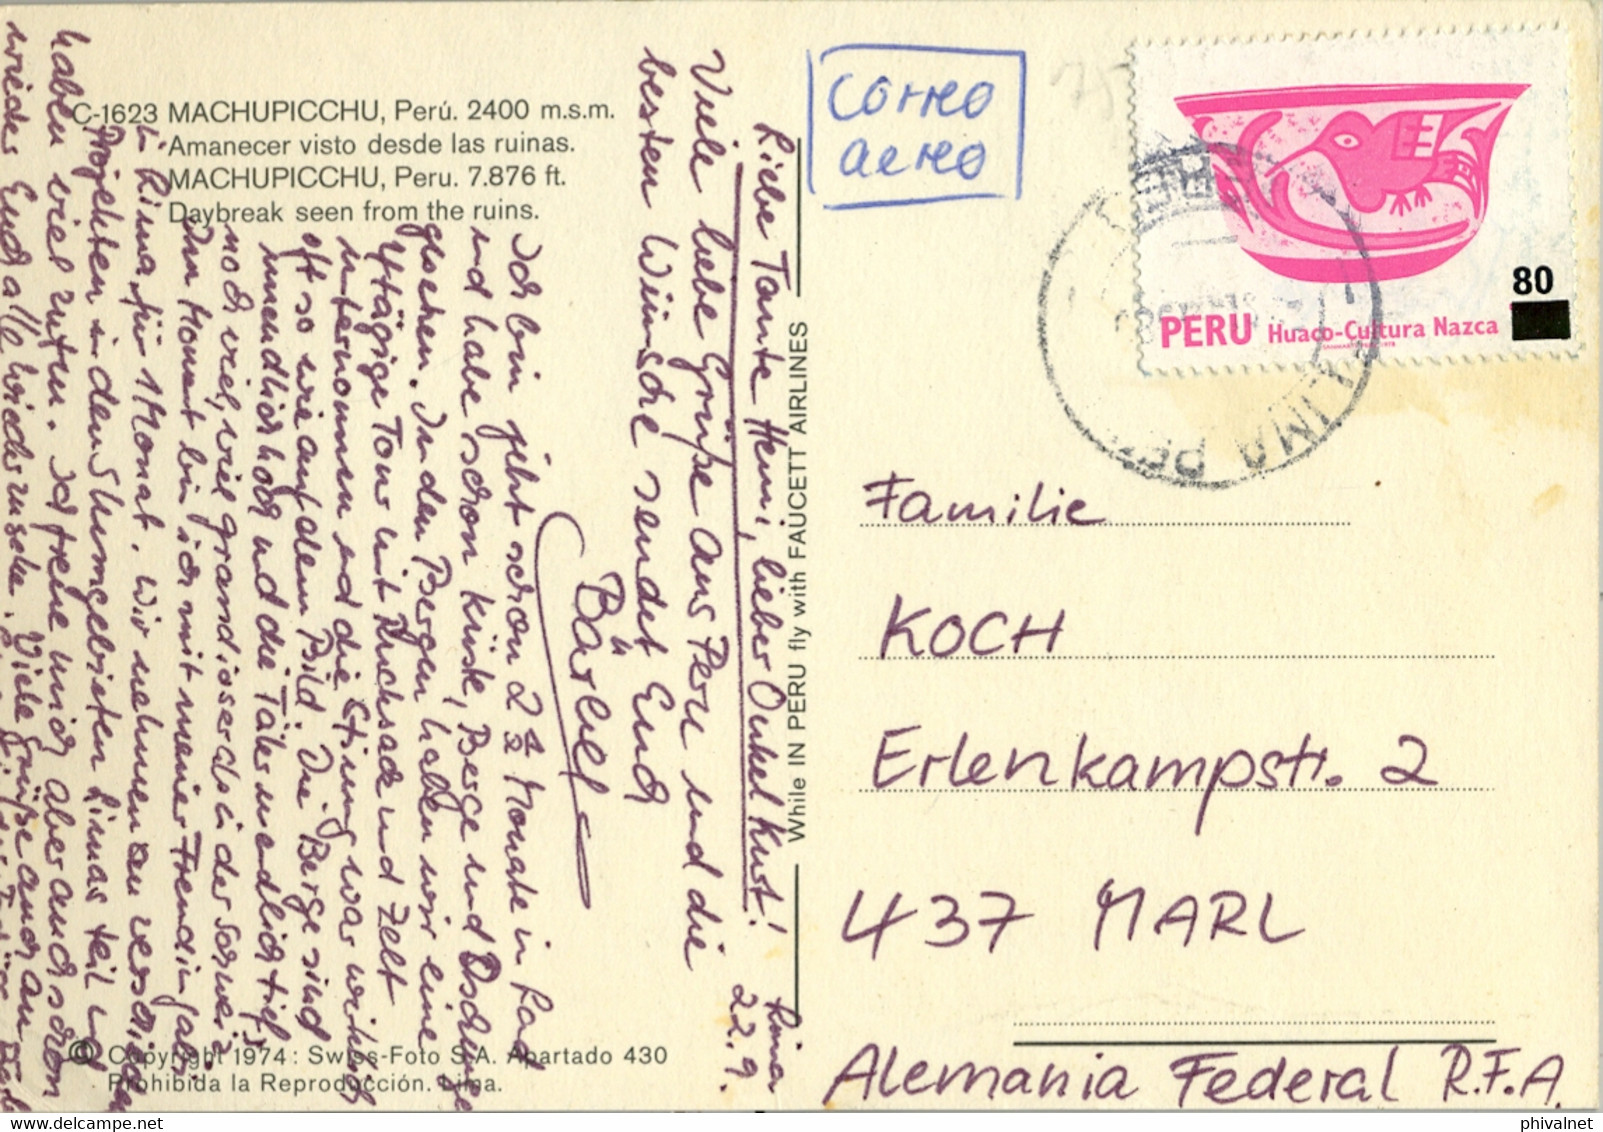 C-1623 MACHUPICCHU, Perú. 2400 m.s.m.
Amanecer visto desde las ruinas.
MACHUPICCHU, Peru. 7.876 ft.
Daybreak seen from the ruins.
correo
aereo
80
PERU Huaco-Cultura Nazca
LIMA
While IN PERU fly with FAUCETT AIRLINES
Lima
22.9.
Liebe Tante Henni, lieber Onkel Kurt!
Viele liebe Grüße aus Peru und die
besten Wünsche sendet Euch
Bärbel
Ich bin jetzt schon 2 1/2 Monate in
und habe schon Küste, Berge und Dschungel
gesehen. In den Bergen haben wir eine
4tägige Tour mit Rucksack und Zelt
unternommen und die war wirklich
oft so wie auf dem Bild. Die Berge sind
unendlich hoch und die Täler unendlich tief,
noch viel, viel grandioser als in der Schweiz
Den Monat bin ich mit meiner Freundin
in Lima für 1 Monat. Wir nehmen an
Projekten in den Limas teil und
haben viel zu tun. Ich freue mich aber auch schon
wieder Euch alle Viele Grüße auch an
Familie
KOCH
Erlenkampstr. 2
437 MARL
Alemania Federal R.F.A.
© Copyright 1974: Swiss-Foto S.A. Apartado 430
Prohibida la Reproducción. Lima.
phivalnet